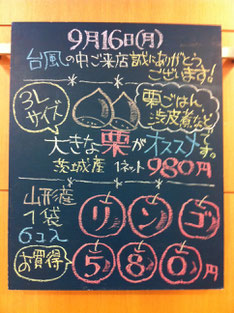 9月16日(月)
台風の中ご来店誠にありがとうございます!
3Lサイズ
栗ごはん
渋皮煮など
大きな栗がオススメです。
茨城産 1ネット 980円
山形産
1袋
6コ入
リンゴ
お買得
580円